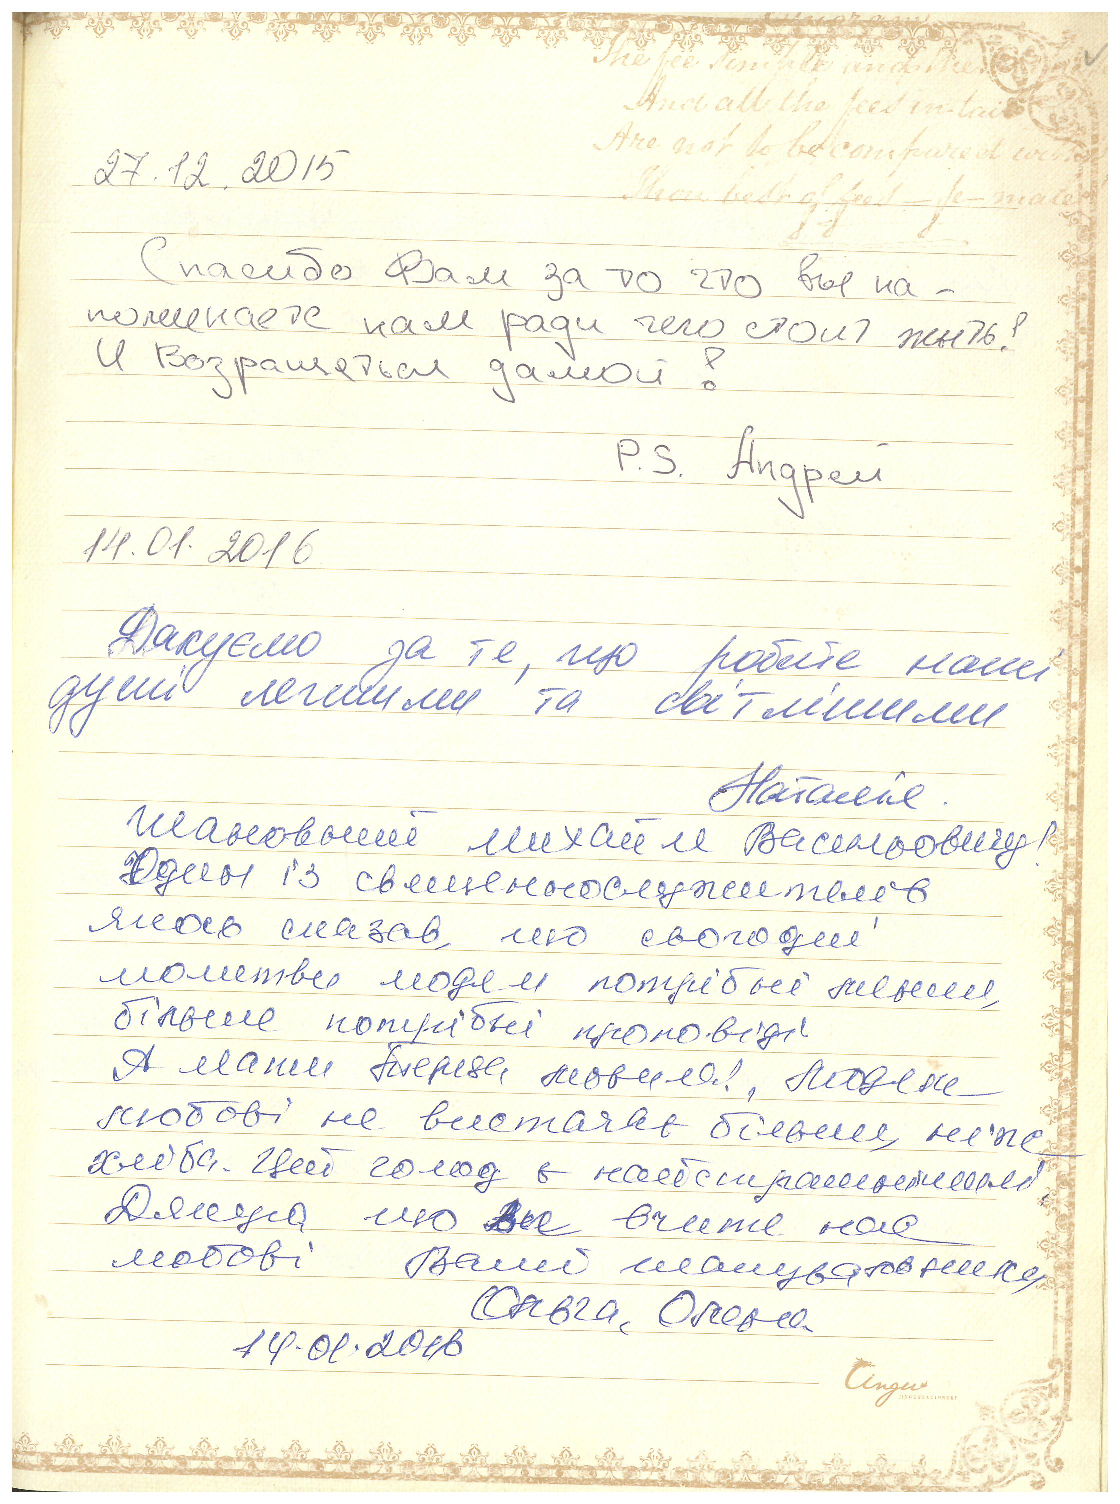 The fee simple and the
And all the fees in tail
Are not to be compared with
Thou best of fees – fe-male
27.12.2015
Спасибо Вам за то что вы на-
поминаете нам ради чего стоит жить!
И Возращаться дамой!
P.S. Андрей
14.01.2016
Дякуємо за те, що робите наші
душі легшими та світлішими
Наталія.
Шановний Михайле Васильовичу!
Один із священнослужителів
якось сказав, що сьогодні
молитви людям потрібні менше,
більше потрібні проповіді
А мати Тереза мовила!, Людям
любові не вистачає більше, ніж
хліба. Цей голод є найстрашнішим.
Дякую, що Ви вчите нас
любові Ваші шанувальники,
Ольга, Олена.
14.01.2016